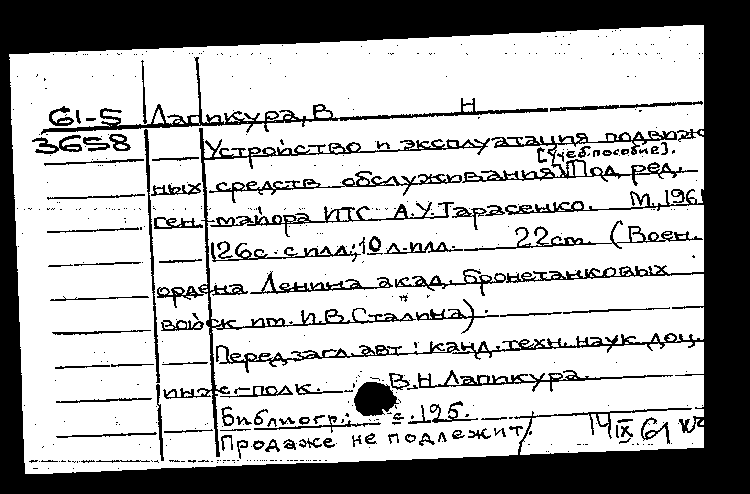 61-5 Лапикура, В Н
3658 Устройство и эксплуатация подвиж
[Учеб. пособие].
ных средств обслуживания Под ред.
ген.-майора ИТС А.У. Тарасенко. М., 1961
126с. с илл; 10 л. илл. 22cm. (Воен.
ордена Ленина акад. бронетанковых
войск им. И.В. Сталина).
Перед загл. авт: канд. техн. наук доц.
инж.-полк. В.Н. Лапикура.
Библиогр.: с. 125.
Продаже не подлежит.
14 IX 61